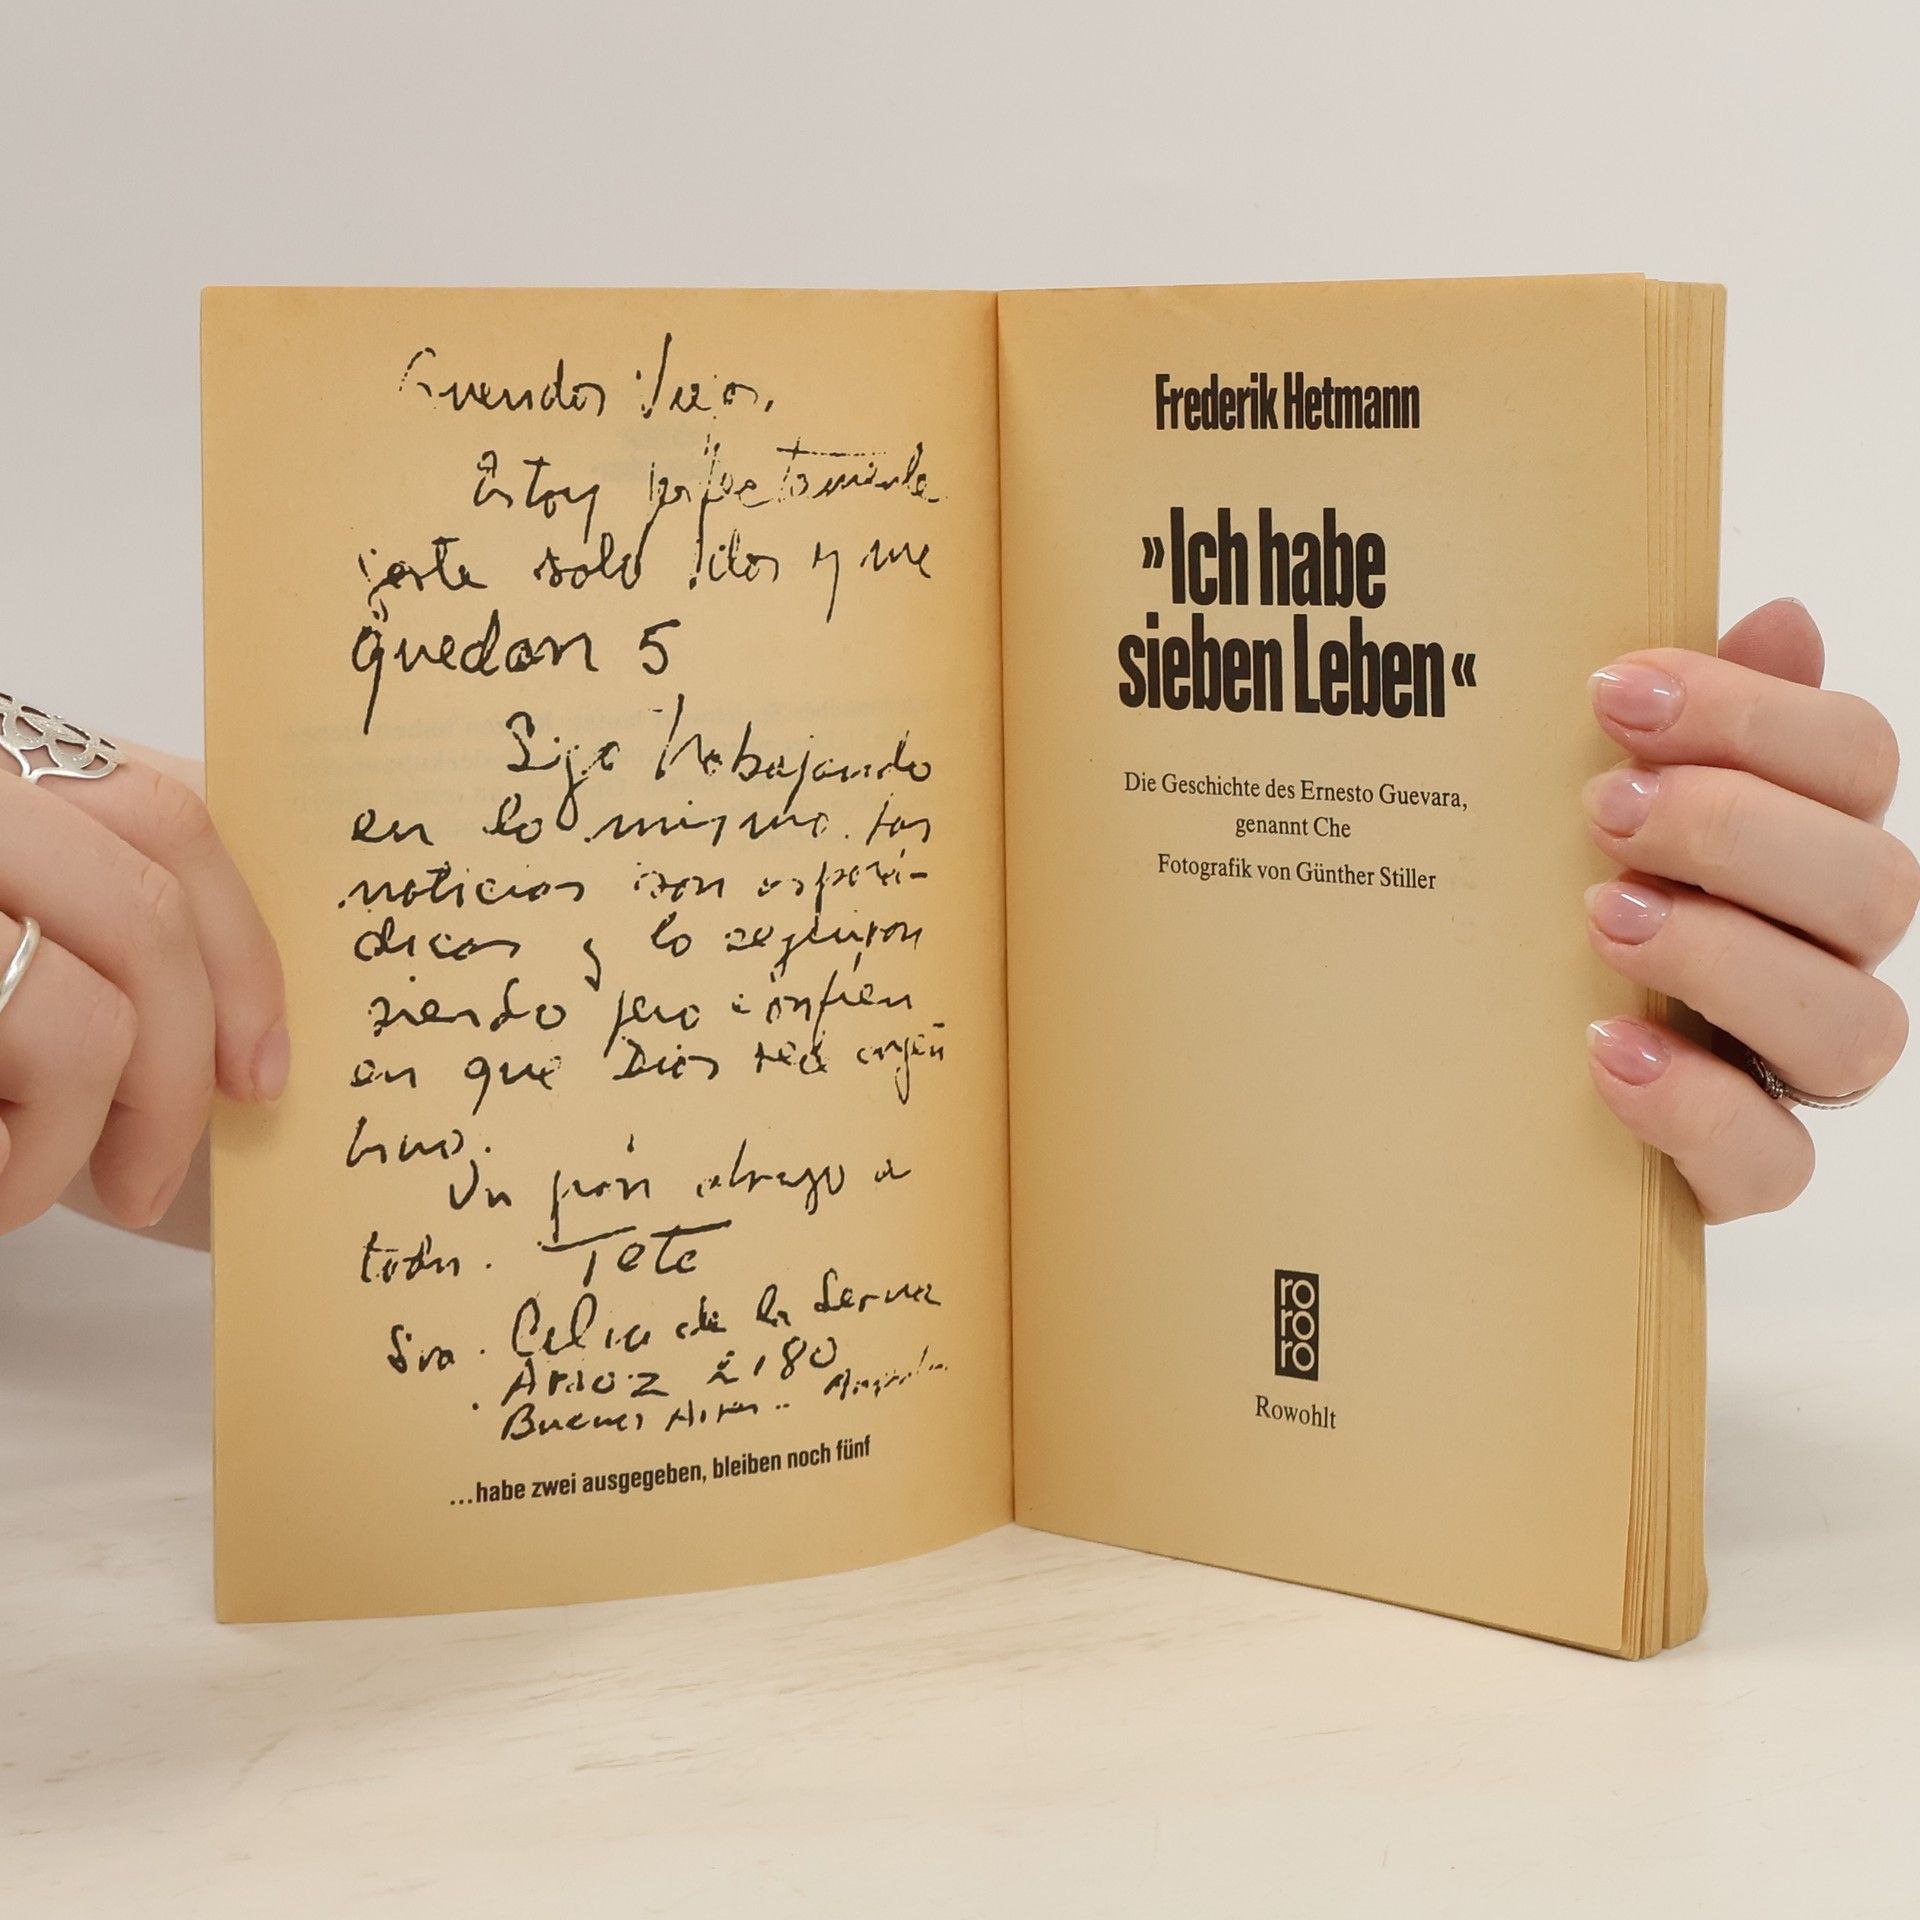 Queridos viejos,
Estoy perfectamente
gasté solo dos y me
quedan 5
Sigo trabajando
en lo mismo. Las
noticias son esporá-
dicas y lo seguiran
siendo pero confíen
en que Dios sea argen
tino.
Un gran abrazo a
todos.
Tete
Sra. Celia de la Serna
Araoz 2180
Buenos Aires..
...habe zwei ausgegeben, bleiben noch fünf
Frederik Hetmann
»Ich habe
sieben Leben«
Die Geschichte des Ernesto Guevara,
genannt Che
Fotografik von Günther Stiller
ro
ro
ro
Rowohlt